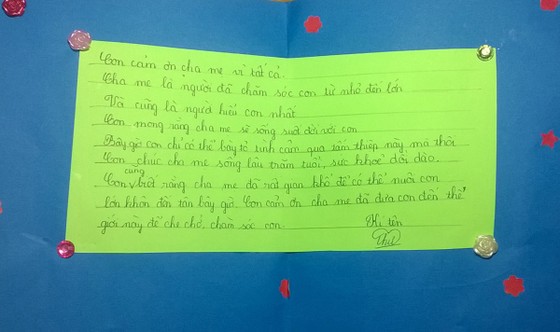 Con cảm ơn cha mẹ vì tất cả.
Cha mẹ là người đã chăm sóc con từ nhỏ đến lớn
Và cũng là người hiểu con nhất
Con mong rằng cha mẹ sẽ sống suốt đời với con
Bây giờ con chỉ có thể bày tỏ tình cảm qua tấm thiệp này mà thôi
Con chúc cha mẹ sống lâu trăm tuổi, sức khoẻ dồi dào.
Con cũng biết rằng cha mẹ đã rất gian khổ để có thể nuôi con
lớn khôn đến tận bây giờ. Con cảm ơn cha mẹ đã đưa con đến thế
giới này để che chở, chăm sóc con.
Kí tên